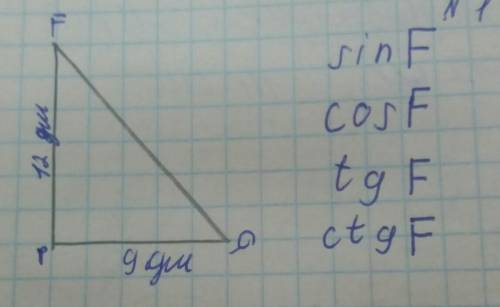 N 1
F
sin F
cos F
12 дм
tg F
ctg F
P
9 дм